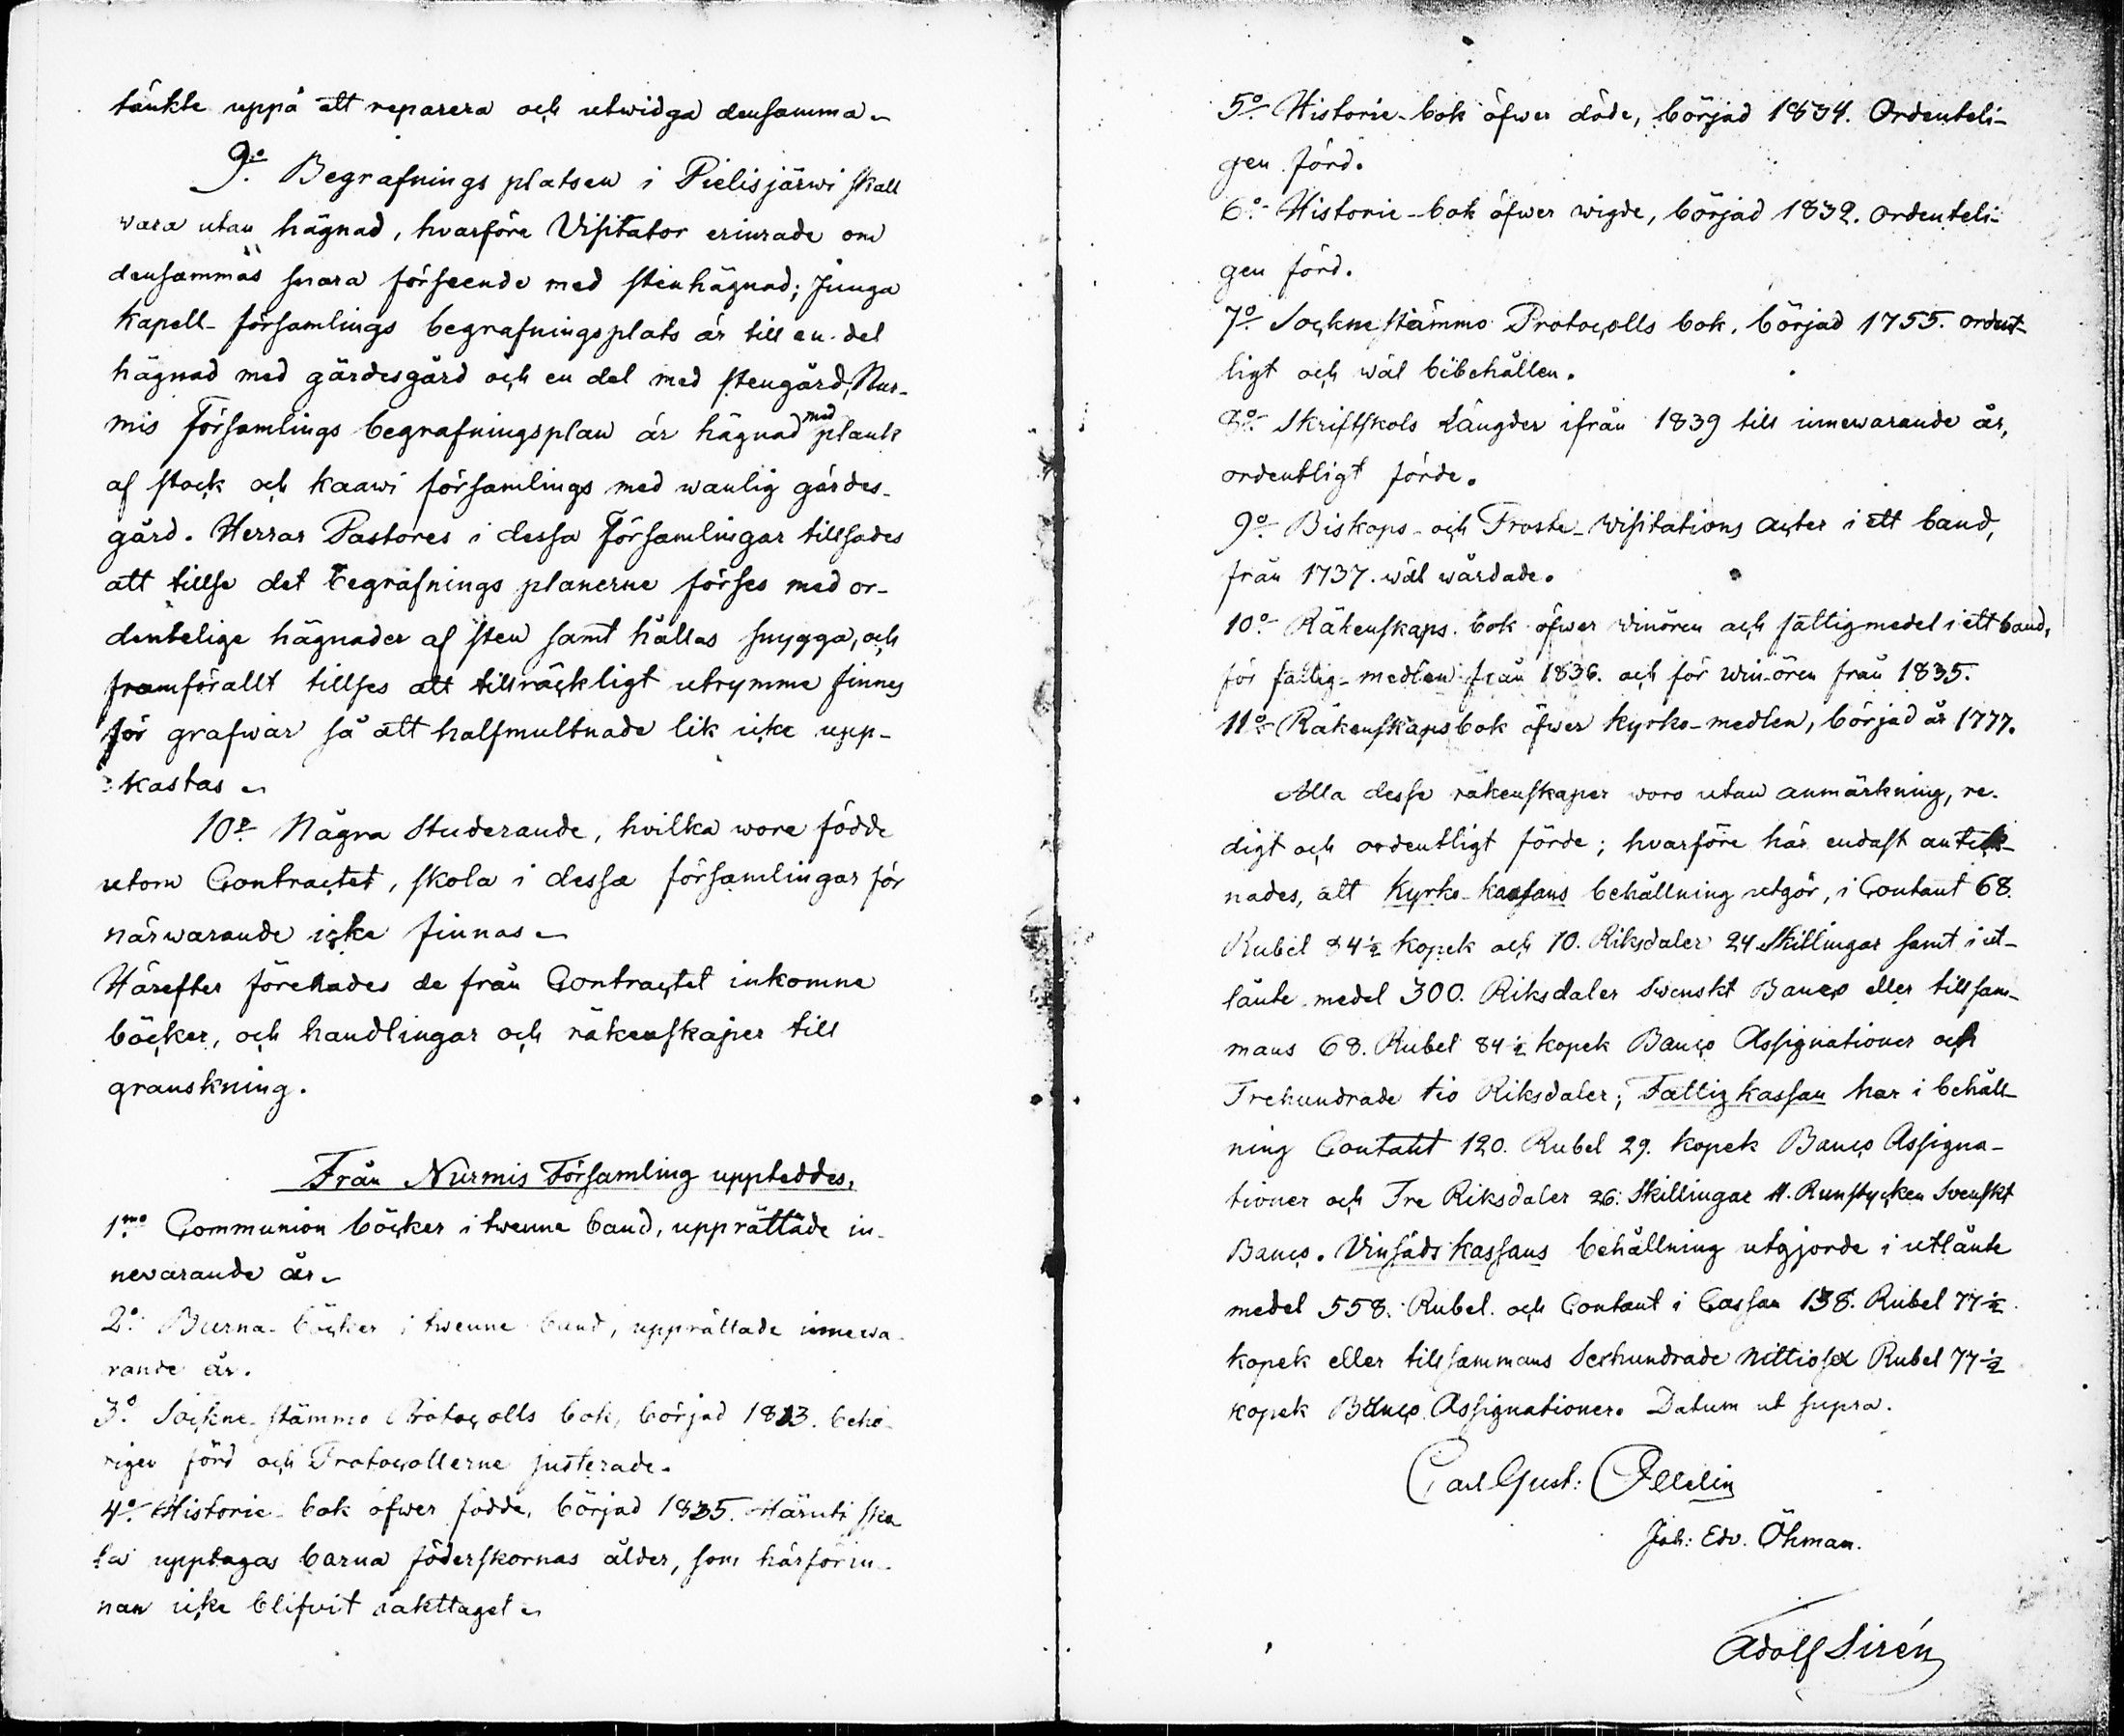 tänkte uppå att reparera och utwidga densamma.
9:o Begrafnings platsen i Pielisjärwi skall
vara utan hägnad, hvarföre Visitator erinrade om
densammas snara förseende med stenhägnad; Juuga
Kapell-församlings begrafningsplats är till en del
hägnad med gärdesgård och en del med stengård, Nur-
mis Församlings begrafningsplan är hägnad med plank
af stock och Kaawi församlings med wanlig gärdes-
gård. Herrar Pastores i dessa Församlingar tillsades
att tillse det begrafnings planerne förses med or-
dentelige hägnader af sten samt hållas snygga, och
framförallt tillses att tillräckligt utrymme finnes
för grafwar så att halfmultnade lik icke upp-
kastas.
10:o Några Studerande, hvilka wore födde
utom Contractet, skola i dessa församlingar för
närwarande icke finnas.
Härefter företades de från Contractet inkomne
böcker, och handlingar och räkenskaper till
granskning.
Från Nurmis Församling uppteddes,
1:mo Communion böcker i twenne band, upprättade in-
nevarande år.
2:o Barna-böcker i twenne band, upprättade innewa-
rande år.
3:o Sockne-stämmo Protocolls bok, börjad 1813. behö-
rigen förd och Protocollerne justerade.
4:o Historie-bok öfwer födde, börjad 1835. Häruti ska
la upptagas barna föderskornas ålder, som härförin-
nan icke blifvit iakttaget.
5:o Historie-bok öfwer döde, börjad 1834. Ordenteli-
gen förd.
6:o Historie-bok öfwer wigde, börjad 1832. ordenteli-
gen förd.
7:o Sockne stämmo Protocolls bok, börjad 1755. ordent-
ligt och wäl bibehållen.
8:o Skriftskols Längder ifrån 1839 till innewarande år,
ordentligt förde.
9:o Biskops- och Proste-Visitations Acter i ett band,
från 1737. wäl wårdade.
10:o Räkenskaps bok öfwer winören och fattigmedel i ett band,
för fattig-medlen från 1836. och för win-ören från 1835.
11:o Räkenskapsbok öfwer Kyrko-medlen, börjad år 1777.
Alla desse räkenskaper woro utan anmärkning, re-
digt och ordentligt förde; hvarföre här endast anteck-
nades, att Kyrko-kassans behållning utgör, i Contant 68.
Rubel 84½ kopek och 10. Riksdaler 24 Skillingar samt i ut-
lånte medel 300. Riksdaler Swenskt Banco eller tillsam-
mans 68. Rubel 84½ kopek Banco Assignationer och
Trehundrade tio Riksdaler; Fattig kassan har i behåll-
ning Contant 120. Rubel 29. kopek Banco Assigna-
tioner och Tre Riksdaler 26. Skillingar 11. Runstycken Svenskt
Banco. Vinsäds kassans behållning utgjorde i utlånte
medel 558. Rubel och Contant i Cassan 138. Rubel 77½
kopek eller tillsammans Sexhundrade Nittiosex Rubel 77½
kopek Banco Assignationer. Datum ut supra.
Carl Gust:
Joh: Edv. Öhman.
Adolf Sirén